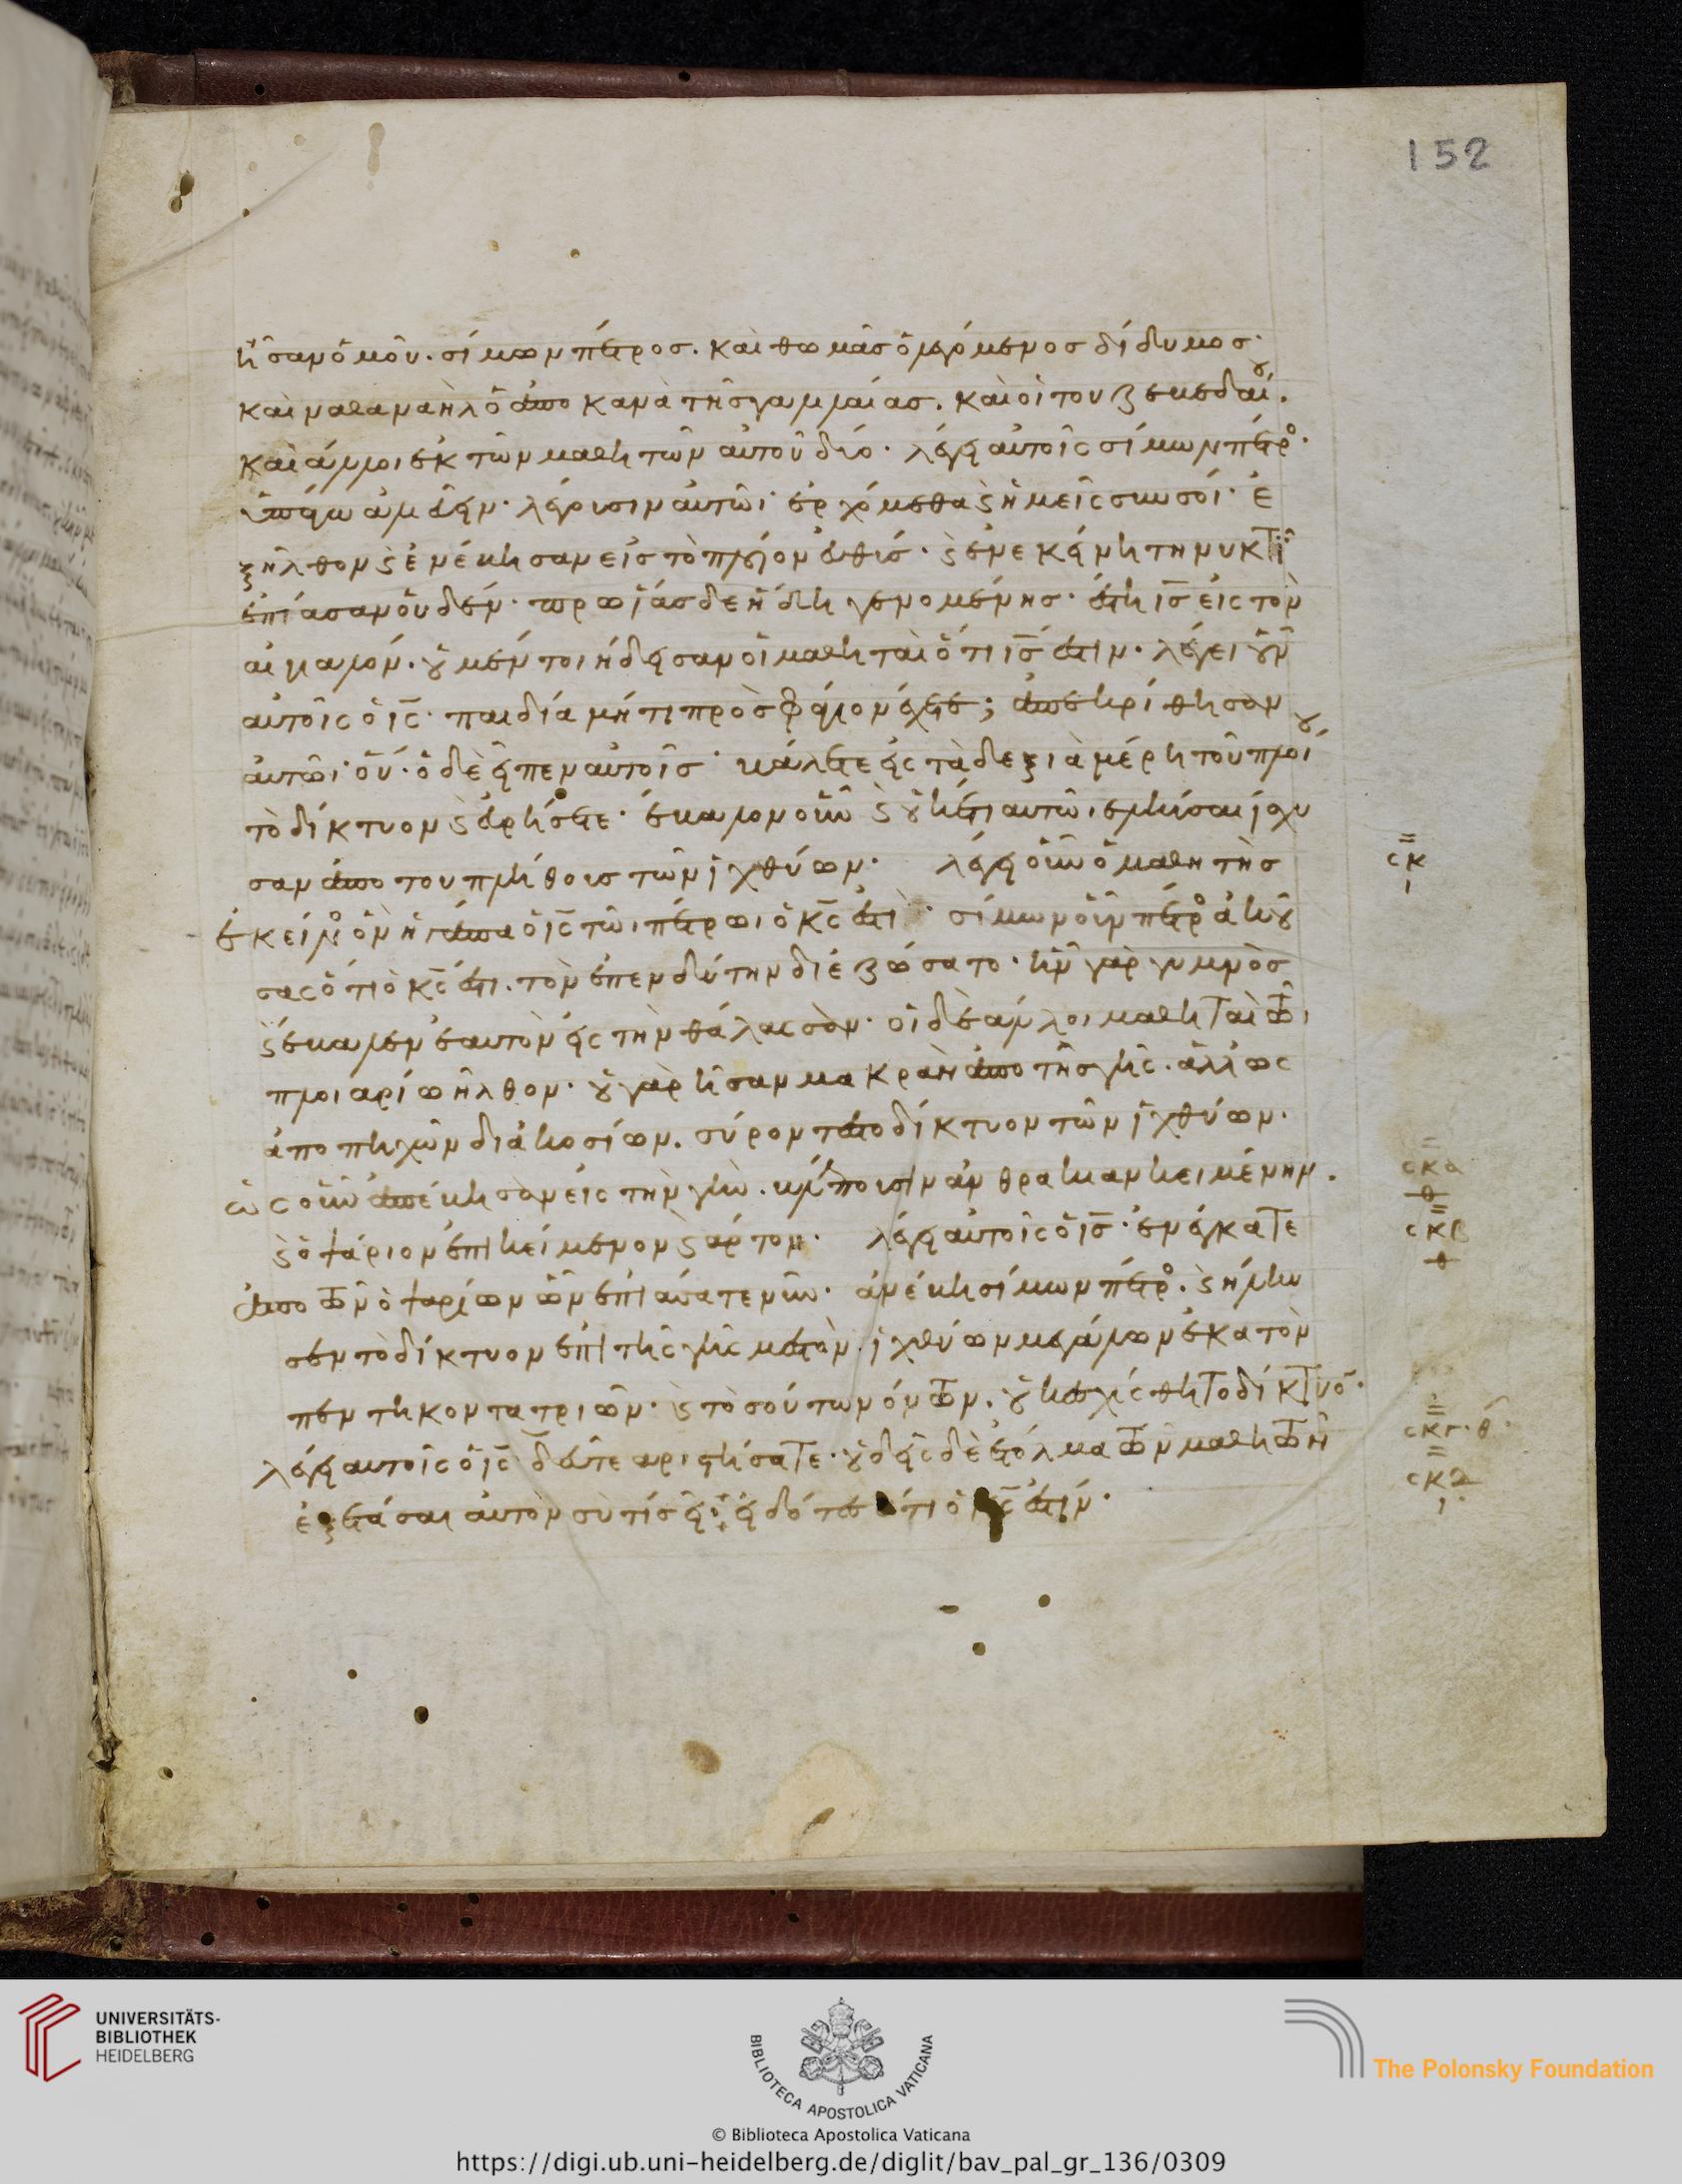 152
ἦσαν ὁμοῦ. σίμων πέτρος. καὶ θωμᾶς ὁ λεγόμενος δίδυμος·
καὶ ναθαναὴλ ὁ ἀπὸ κανὰ τῆς γαλλιλαίας. καὶ οἱ τοῦ ζεβεδαίου.
καὶ ἄλλοι ἐκ τῶν μαθητῶν αὐτοῦ δύο· λέγει αὐτοῖς σίμων πέτρος·
ὑπάγω ἁλιεύειν· λέγουσιν αὐτῶι· ἐρχόμεθα ϗ ἡμεῖς σὺν σοί· ἐ
ξῆλθον ϗ ἐνέβησαν εἰς τὸ πλοῖον εὐθύς· ϗ ἐν ἐκείνη τῆ νυκτὶ
ἐπίασαν οὐδέν· πρωΐας δὲ ἤδη γενομένης· ἔστη ις εἰς τὸν
αἰγιαλόν. οὐ μέντοι ἤδεισαν οἱ μαθηταὶ ὅτι ις ἐστιν. λέγει οὖν
αὐτοῖς ὁ ις· παιδία μή τι προσφάγιον ἔχετε; ἀπεκρίθησαν
αὐτῶι· οὔ· ὁ δὲ εἶπεν αὐτοῖς· βάλετε εἰς τὰ δεξιὰ μέρη τοῦ πλοίου
τὸ δίκτυον ϗ εὑρήσετε· ἔβαλον οὖν ϗ οὐκέτι αὐτὸ ἑλκύσαι ἴσχυ
σαν ἀπὸ τοῦ πλήθους τῶν ἰχθύων· λέγει οὖν ὁ μαθητὴς
σκ
ι
ἐκεῖνος ὃν ἠγάπα ὁ ις τῶι πέτρωι ὁ κς ἐστι· σίμων οὖν πέτρος ἀκού
σας ὅτι ὁ κς ἐστι. τὸν ἐπενδύτην διεζώσατο· ἦν γὰρ γυμνὸς
ϗ ἔβαλεν ἑαυτὸν εἰς τὴν θάλασσαν· οἱ δὲ ἄλλοι μαθηταὶ τῶ
πλοιαρίω ἦλθον· οὐ γὰρ ἦσαν μακρὰν ἀπὸ τῆς γῆς. ἀλλ ὡς
ἀπὸ πηχῶν διακοσίων. σύροντες τὸ δίκτυον τῶν ἰχθύων·
ὡς οὖν ἀπέβησαν εἰς τὴν γῆν. βλέπουσιν ἀνθρακιὰν κειμένην.
σκα
θ
ϗ ὀψάριον ἐπικείμενον ϗ ἄρτον· λέγει αὐτοῖς ὁ ις· ἐνέγκατε
σκβ
θ
ἀπὸ τῶν ὀψαρίων ὧν ἐπιάσατε νῦν· ἀνέβη σίμων πέτρος. ϗ ἥλκυ
σεν τὸ δίκτυον ἐπὶ τῆς γῆς μεστὸν. ἰχθύων μεγάλων ἑκατὸν
πεντηκοντατριῶν· ϗ τοσούτων ὄντων. οὐκ ἐσχίσθη τὸ δίκτυον·
λέγει αὐτοῖς ὁ ις δεῦτε ἀριστήσατε· οὐδεὶς δὲ ἐτόλμα τῶν μαθητῶν
σκγ·θ·
ἐξετάσαι αὐτὸν σὺ τίς εἶ· εἰδότες ὅτι ὁ κς ἐστιν·
σκδ
ι
UNIVERSITÄTS-
BIBLIOTHEK
HEIDELBERG
BIBLIOTECA APOSTOLICA VATICANA
The Polonsky Foundation
© Biblioteca Apostolica Vaticana
https://digi.ub.uni-heidelberg.de/diglit/bav_pal_gr_136/0309